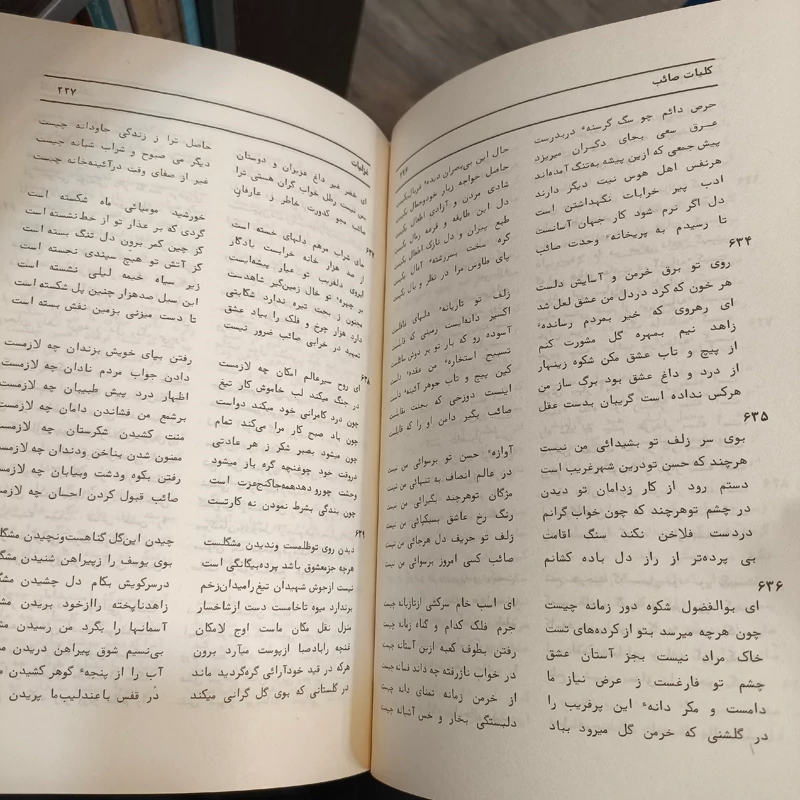 کلیات صائب
۲۲۶
حرص دائم چو سگ گرسنهٔ دربدرست
حال این بی‌بصران دیدهٔ غربال
عرق سعی بجای دگران میریزد
حاصل خواجه زبار خود حمال
پیش جمعی که ازین پیشه به‌تنگ آمده‌اند
شادی مردن و آزادی اطفال
هرنفس اهل هوس نیت دیگر دارند
دل این طایفه و قرعه رمال
ادب پیر خرابات نگهداشتن است
طبع پیران و دل نازک اطفال
دل اگر نرم شود کار جهان آسانست
گره سخت بسررشتهٔ آمال
تا رسیدم به پریخانهٔ وحدت صائب
پای طاوس مرا در نظر و بال
۶۳۴
روی تو برق خرمن و آسایش دلست
زلف تو تازیانهٔ دلهای
هر خون که کرد دردل من عشق لعل شد
اکسیر دانه‌ایست زمینی که
ای رهروی که خیر بمردم رسانده‌ای
آسوده رو که بار تو بر دوش
زاهد نیم بمهره گل مشورت کنم
تسبیح استخارهٔ من عقده
از پیچ و تاب عشق مکن شکوه زینهار
کین پیچ و تاب جوهر آئینهٔ
از درد و داغ عشق بود برگ ساز من
اینست دوزخی که بجنت
هرکس نداده است گریبان بدست عقل
صائب بگیر دامن او را که
۶۳۵
بوی سر زلف تو بشیدائی من نیست
آوازهٔ حسن تو برسوائی من نیست
هرچند که حسن تودرین شهرغریب است
در عالم انصاف به تنهائی من نیست
دستم رود از کار زدامان تو دیدن
مژگان توهرچند بگیرائی من نیست
در چشم توهرچند که چون خواب گرانم
رنگ رخ عاشق بسبکپائی من نیست
دردست فلاخن نکند سنگ اقامت
زلف تو حریف دل هرجائی من نیست
بی پرده‌تر از راز دل باده کشانم
صائب کسی امروز برسوائی من نیست
۶۳۶
ای بوالفضول شکوه دور زمانه چیست
ای اسب خام سرکشی ازتازیانه چیست
چون هرچه میرسد بتو از کرده‌های تست
جرم فلک کدام و گناه زمانه چیست
خاک مراد نیست بجز آستان عشق
رفتن بطوف کعبه ازین آستانه چیست
چشم تو فارغست ز عرض نیاز ما
در خواب نازرفته چه داند فسانه چیست
دامست و مکر دانهٔ این پرفریب را
از خرمن زمانه تمنای دانه چیست
در گلشنی که خرمن گل میرود بباد
دلبستگی بخار و خس آشیانه چیست
غزلیات
۲۲۷
ای خضر غیر داغ عزیزان و دوستان
حاصل ترا ز زندگی جاودانه چیست
بس نیست رطل خواب گران هستی ترا
دیگر می صبوح و شراب شبانه چیست
صائب مجو کدورت خاطر ز عارفان
غیر از صفای وقت درآئینه‌خانه چیست
۶۳۷
جای شراب مرهم دلهای خسته است
خورشید مومیائی ماه شکسته است
از صد هزار خانه خراب یادگار
گردی که بر عذار تو از خط‌نشسته است
ابروی دلفریب تو عیار پیشه‌ایست
کز چین کمر برون دل تنگ بسته است
بر چهرهٔ تو خال زمین‌گیر شاهدست
کز آتش تو هیچ سپندی نجسته است
مجنون ز بخت تیره ندارد شکایتی
زیر سیاه خیمه لیلی نشسته است
دارد هزار چرخ و فلک را بیاد عشق
این سیل صدهزار چنین پل شکسته است
تمهید در خرابی صائب ضرور نیست
تا دست میزنی بزمین نقش بسته است
۶۳۸
ای روح سیرعالم امکان چه لازمست
رفتن بپای خویش بزندان چه لازمست
در جنگ میکند لب خاموش کار تیغ
دادن جواب مردم نادان چه لازمست
چون درد کامرانی خود میکند دواست
اظهار درد پیش طبیبان چه لازمست
چون باد صبح کار مرا می‌کند تمام
برشمع من فشاندن دامان چه لازمست
چون میشود بصبر شکر ز هر عادتی
منت کشیدن شکرستان چه لازمست
دروقت خود چوغنچه گره باز میشود
ممنون شدن بناخن ودندان چه لازمست
وحشت چورو دهدهمه‌جاکنج‌عزت است
رفتن بکوه ودشت وبیابان چه لازمست
چون بندگی بشرط نمودن نه کارتست
صائب قبول کردن احسان چه لازمست
۶۳۹
دیدن روی توظلمست وندیدن مشگلست
چیدن این‌گل گناهست‌ونچیدن
هرچه جزمعشوق باشد پرده‌بیگانگی است
بوی یوسف را زپیراهن شنیدن
نیست ازجوش شهیدان تیغ رامیدان‌زخم
درسرکویش بکام دل چشیدن
برندارد میوه تاخامست دست‌ازشاخسار
زاهدناپخته راازخود بریدن
منزل نقل مکان ماست اوج لامکان
آسمانها را بگرد من رسیدن
غنچه رابادصبا ازپوست میآرد برون
بی‌نسیم شوق پیراهن دریدن
هرکه در قید خودآرائی گره‌گردید ماند
آب را از پنجهٔ گوهر کشیدن
در گلستانی که بوی گل گرانی میکند
در قفس باعندلیب‌ما پریدن